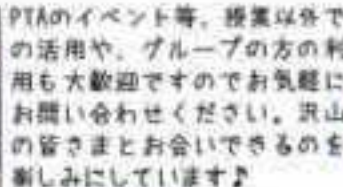 PTAのイベント等、授業以外で
の活用や、グループの方の利
用も大歓迎ですのでお気軽に
お問い合わせください。沢山
の皆さまとお会いできるのを
楽しみにしています♪